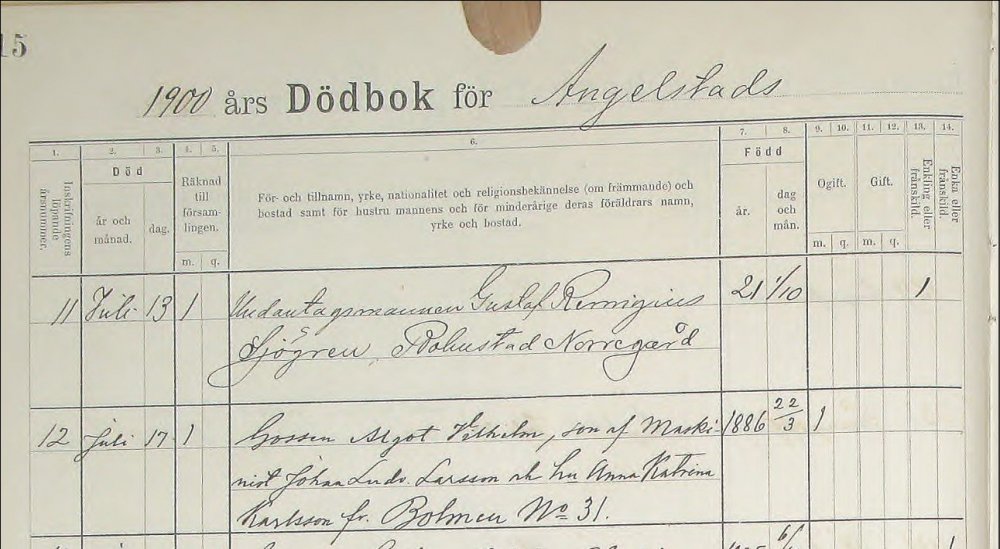 15
1900 års Dödbok för Angelstads
1. 2. 3. 4. 5. 6. 7. 8. 9. 10. 11. 12. 13. 14.
Inskrifningens löpande årsnummer.
Död
år och månad.
dag.
Räknad till försam-lingen.
m. q.
För- och tillnamn, yrke, nationalitet och religionsbekännelse (om främmande) och
bostad samt för hustru mannens och för minderårige deras föräldrars namn,
yrke och bostad.
Född
år.
dag och mån.
Ogift.
m. q.
Gift.
m. q.
Enkling eller frånskild.
Enka eller frånskild.
11 Juli 13 1 Undantagsmannen Gustaf Remigius 21 1/10 1
Sjögren, Bohustad Norregård
12 Juli 17 1 Gossen Algot Vilhelm, son af Maski- 1886 22/3 1
nist Johan Ludv. Larsson och hu Anna Katrina
Karlsson fr. Bolmen No 31.